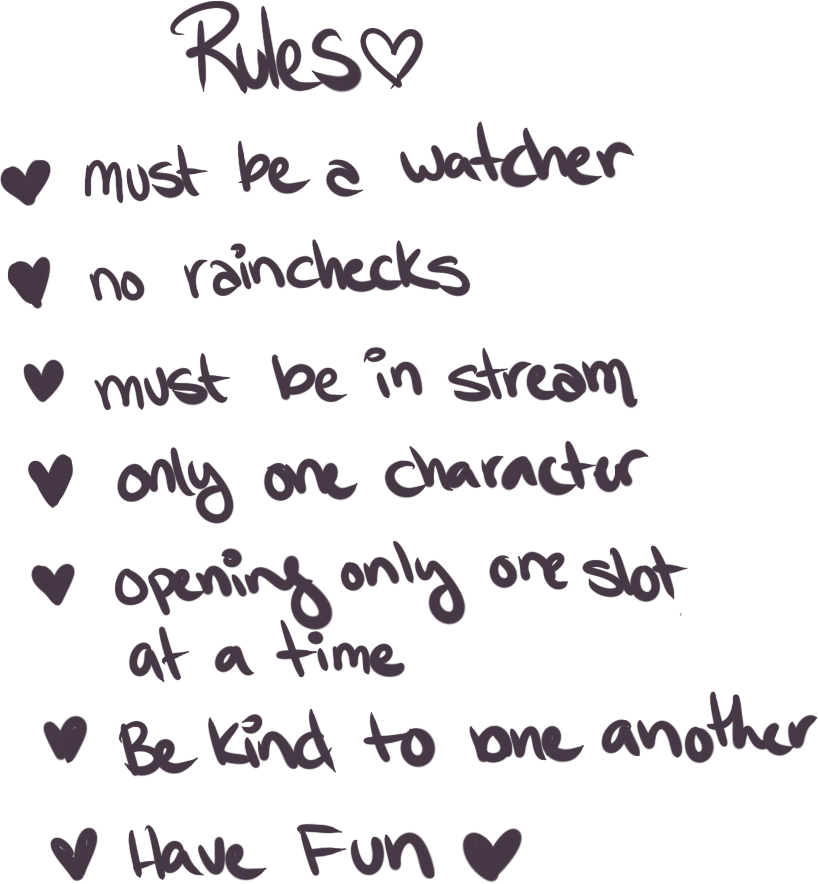 Rules♡
♥ must be a watcher
♥ no rainchecks
♥ must be in stream
♥ only one character
♥ opening only one slot
at a time
♥ Be kind to one another
♥ Have Fun ♥